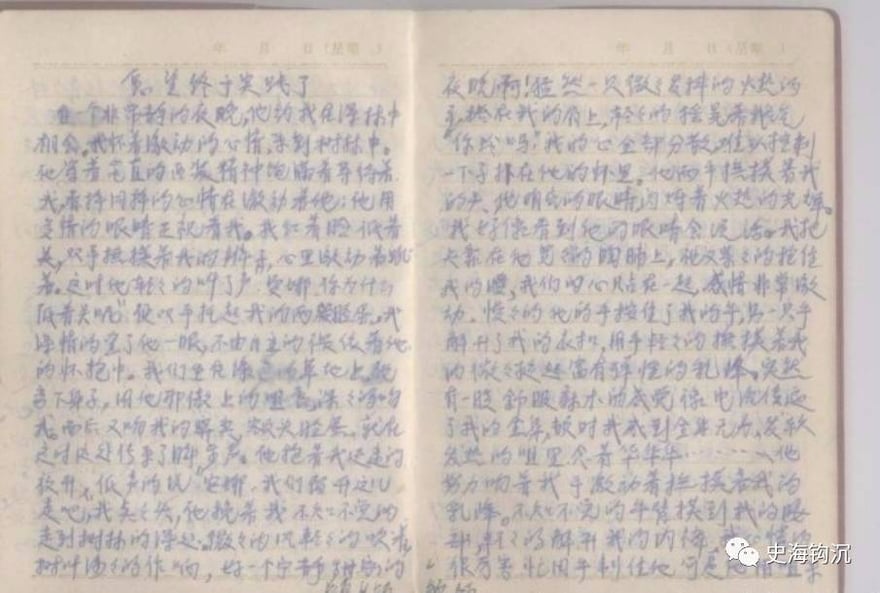 年 月 日(星期 )
愿望终于实现了
在一个非常静的夜晚,他约我在漫林中
相会。我怀着激动的心情,来到树林中。
他穿着笔直的 精神饱满着等待着
我,看样同样的心情在激动着他;他用
定情的眼睛正视着我。我红着脸低着
头,双手抚摸着我的辫子,心里激动着跳
着。这时他轻轻的叫了声:安娜,你为什么
低着头呢"便双手托起我的两 脸蛋。我
深情的望了他一眼,不由自主的偎依着他
的怀抱中。我们坐在漆 的草地上,他
弯下身子,用他那傲上的嘴唇,深深的吻
我。而后又吻我的 头脸蛋。就在
这时远处传来了脚步声。他抱着我迅速的
放开,低声的说:"安娜,我们离开这儿
走吧,我点点头,他搀着我不知不觉的
走到树林的深处。微微的风轻轻的吹着,
树叶沙沙的作响,好一个宁静了甜的
年 月 日(星期 )
夜晚啊!猛然一只微微发抖的火热的
手,搭在我的肩上,轻轻的摇晃着
"你 吗"我的心全部分散,难以控制
一下子扑在他的怀里。他两手抚摸着我
的头,他明亮的眼睛闪烁着火热的光辉。
我好像看到他的眼睛会说话。我把
头靠在他宽 的胸脯上,他又紧紧的抱住
我的腰,我们的心贴在一起,感情非常激
动。慢慢的他的手按住了我的手,另一只手
解开了我的衣扣,用手轻轻的抚摸着我
的微微挺起富有弹性的乳峰。突然
有一股舒服麻木的感觉像电流传遍
了我的全身,顿时我感到全身无力,发软
发热的咀里含着华华华………他
努力吻着我手激动着抚摸着我的
乳峰。不知不觉的手臂摸到我的腰
部,轻轻的解开我的内裤,
很历害忙用手制住他可是
史海钩沉